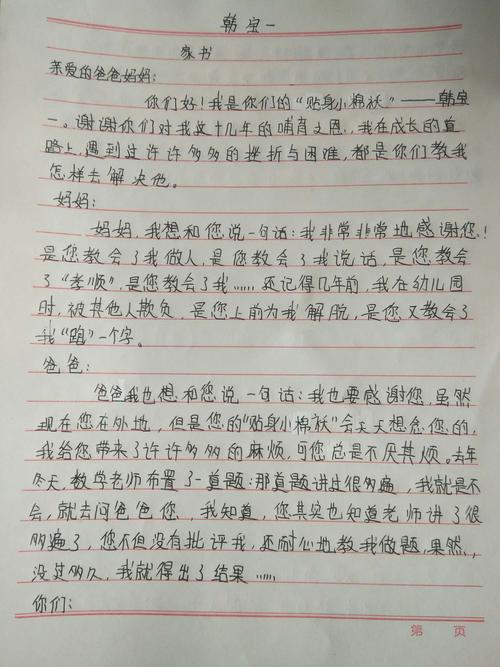 韩宝一
家书
亲爱的爸爸妈妈:
你们好!我是你们的“贴身小棉袄”——韩宝
一。谢谢你们对我这十几年的哺育之恩,我在成长的道
路上,遇到过许许多多的挫折与困难,都是你们教我
怎样去解决他。
妈妈:
妈妈,我想和您说一句话:我非常非常地感谢您!
是您教会了我做人,是您教会了我说话,是您教会
了“孝顺”,是您教会了我……还记得几年前,我在幼儿园
时,被其他人欺负,是您上前为我解脱,是您又教会了
我“跑”一个字。
爸爸:
爸爸我也想和您说一句话:我也要感谢您,虽然
现在您在外地,但是您的“贴身小棉袄”会天天想念您的,
我给您带来了许许多多的麻烦,可您总是不厌其烦。去年
冬天,数学老师布置了一道题:那道题讲过很多遍,我就是不
会,就去问爸爸您,我知道,您其实也知道老师讲了很
多遍了,您不但没有批评我,还耐心地教我做题,果然,
没过多久,我就得出了结果……
你们:
第 页